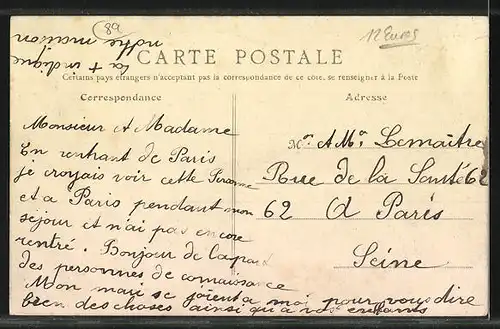 89
12 Euros
la + indique
notre maison
CARTE POSTALE
Certains pays étrangers n'acceptant pas la correspondance de ce côté, se renseigner à la Poste
Correspondance
Adresse
Monsieur et Madame
En rentrant de Paris
je croyais voir cette
et a Paris pendant mon
sejour et n'ai pas encore
rentré. Bonjour de la part
des personnes de connaissance
Mon mari se joient a moi pour vous dire
bien des choses ainsi qu'a vos enfants
Mr et Me Lemaître
Rue de la Santé 62
62 A Paris
Seine